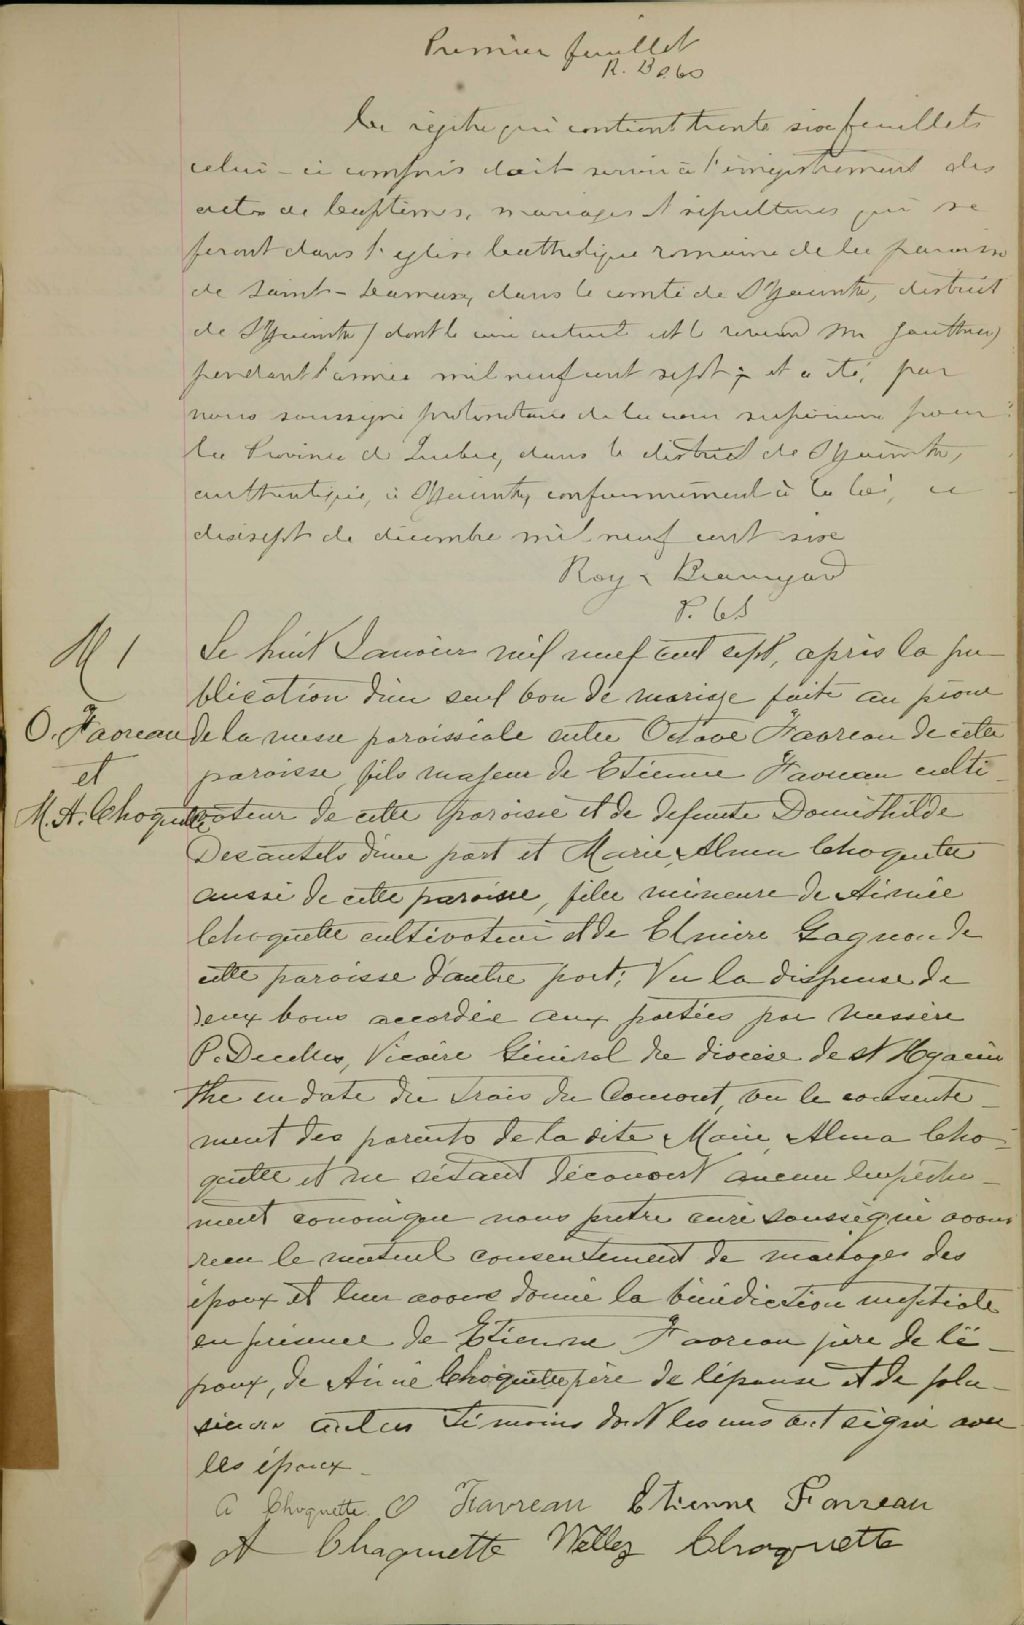 Premier feuillet
R. B P.C.S
Ce régistre qui contient trente six feuillets
celui-ci compris doit servir à l'enregistrement des
actes de baptêmes, mariages et sépultures qui se
feront dans l'eglise Catholique romaine de la paroisse
de Saint-Damase, dans le comté de St Hyacinthe, district
de St Hyacinthe, (dont le curé actuel est le révérend Mr Gauthier)
pendant l'année mil neuf cent sept; et a été, par
nous soussigné protonotaire de la cour supérieure pour
la Province de Quebec, dans le district de St Hyacinthe,
authentiqué, à St Hyacinthe, conformément à la loi, ce
dixsept de décembre mil neuf cent six
Roy & Beauregard
P. C.S
M 1
O. Favreau
et
M. A. Choquette
Le huit Janvier mil neuf cent sept, après la pu-
blication d'un seul ban de mariage faite au prone
de la messe paroissiale entre Octave Favreau de cette
paroisse, fils majeur de Etienne Favreau culti-
vateur de cette paroisse et de defunte Domithilde
Desautels d'une part et Marie, Alma Choquette
aussi de cette paroisse, fille mineure de Aimée
Choquette cultivateur et de Elmire Gagnon de
cette paroisse d'autre part; Vu la dispense de
deux bans accordée aux parties par messire
P. Decelles, Vicaire Général du diocèse de St Hyacin
the en date du trois du Courant, vu le consente-
ment des parents de la dite Marie, Alma Cho-
quette et ne s'étant découvert aucun empêche-
ment canonique nous pretre curé soussigné avons
recu le mutuel consentement de mariage des
époux et leur avons donné la bénédiction nuptiale
en présence de Etienne Favreau père de l'é-
poux, de Aimé Choquette père de l'épouse et de plu-
sieurs autres témoins dont les uns ont signé avec
les époux.
A Choquette O Favreau Etienne Favreau
A Choquette Wellez Choquette